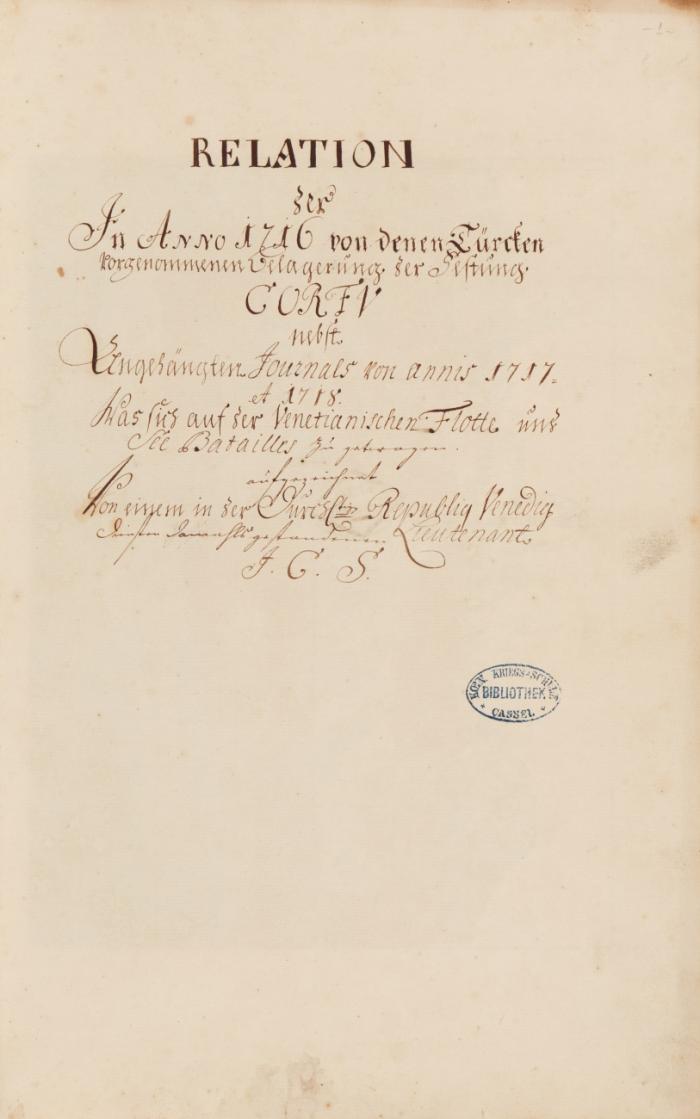 -1-
RELATION
der
In ANNO 1716 von denen Türcken
vorgenommenen Belagerung der Festung
CORFV
nebst
Angehängten Journals von annis 1717.
et 1718.
Was sich auf der Venetianischen Flotte und
See Batailles zu getragen.
aufgezeichnet
Von einem in der Durchl. Republiq Venedig
Diensten damahls gestandenen Lieutenant
J. C. S.
KOEN. KRIEGS-SCHULE
BIBLIOTHEK
* CASSEL *